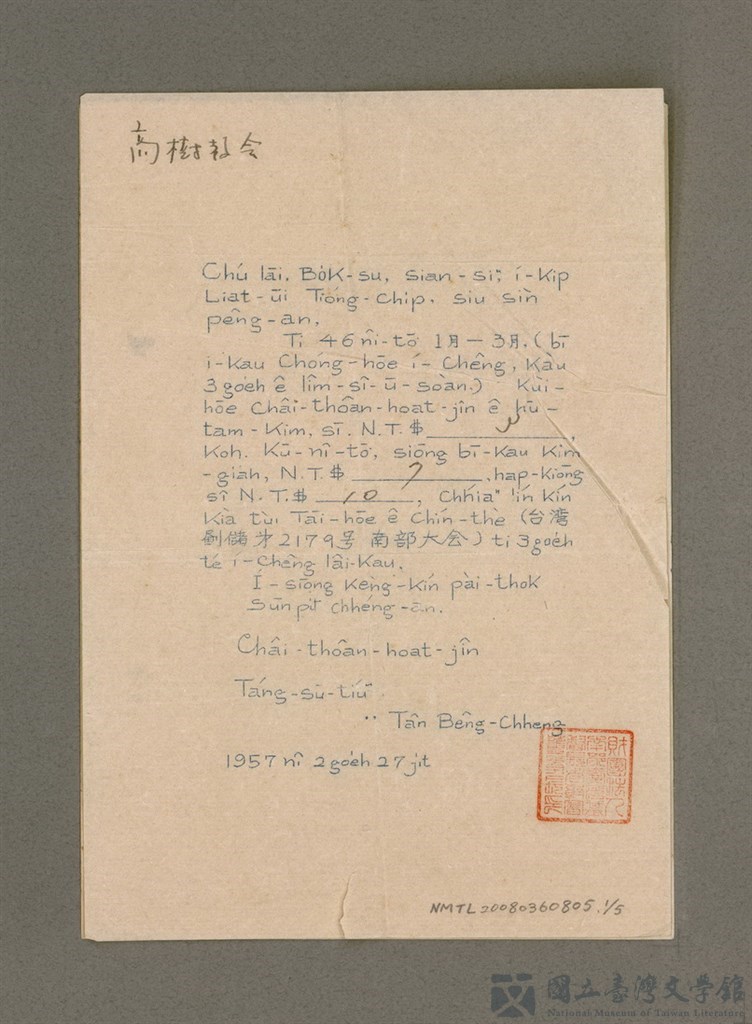 高樹教会
Chú lāi. Bo̍k-su, sian-siⁿ, í-kip
Liat-ūi Tióng-chip. siu sìn
pêng-an.
Tī 46 nî-tō 1月-3月.(bī
i-kau Chóng-hōe í-Chêng, kàu
3 goe̍h ê lîm-sî-ū-soàn.) Kùi-
hōe Châi-thôan-hoat-jîn ê hū-
tam-Kim, sī. N.T.$ 3,
Koh. Kū-nî-tō, siōng bī-kau kim
-gia̍h, N.T.$ 7, ha̍p-kiōng
sī N.T.$ 10, Chhiáⁿ lín kín
kià tùi Tāi-hōe ê Chín-thè (台湾
劃儲才2179号 南部大会) tī 3 goe̍h
té í-chêng lâi-kau.
Í-siōng kèng-kín pài-thok
Sūn pit chhéng-an.
Châi-thôan-hoat-jîn
Táng-sū-tiúⁿ.
" Tân Bêng-Chheng
1957 nî 2 goe̍h 27 ji̍t
NMTL20080360805.1/5
國立臺灣文學館
National Museum of Taiwan Literature